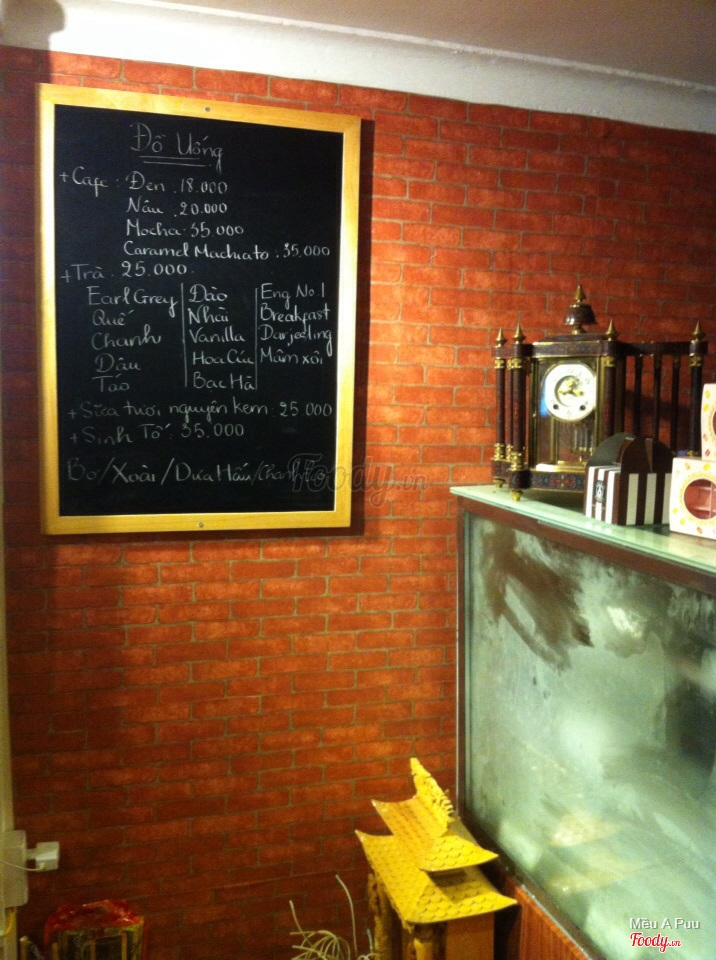 Đồ Uống
+ Cafe : Đen : 18.000
Nâu : 20.000
Mocha : 35.000
Caramel Machiato : 35.000
+ Trà : 25.000
Earl Grey | Đào | Eng No.1
Quế | Nhài | Breakfast
Chanh | Vanilla | Darjeeling
Dâu | Hoa Cúc | Mâm xôi
Táo | Bạc Hà |
+ Sữa tươi nguyên kem : 25.000
+ Sinh Tố : 35.000
Bơ / Xoài / Dưa Hấu / Chanh
Foody.vn
Mều A Puu
Foody.vn